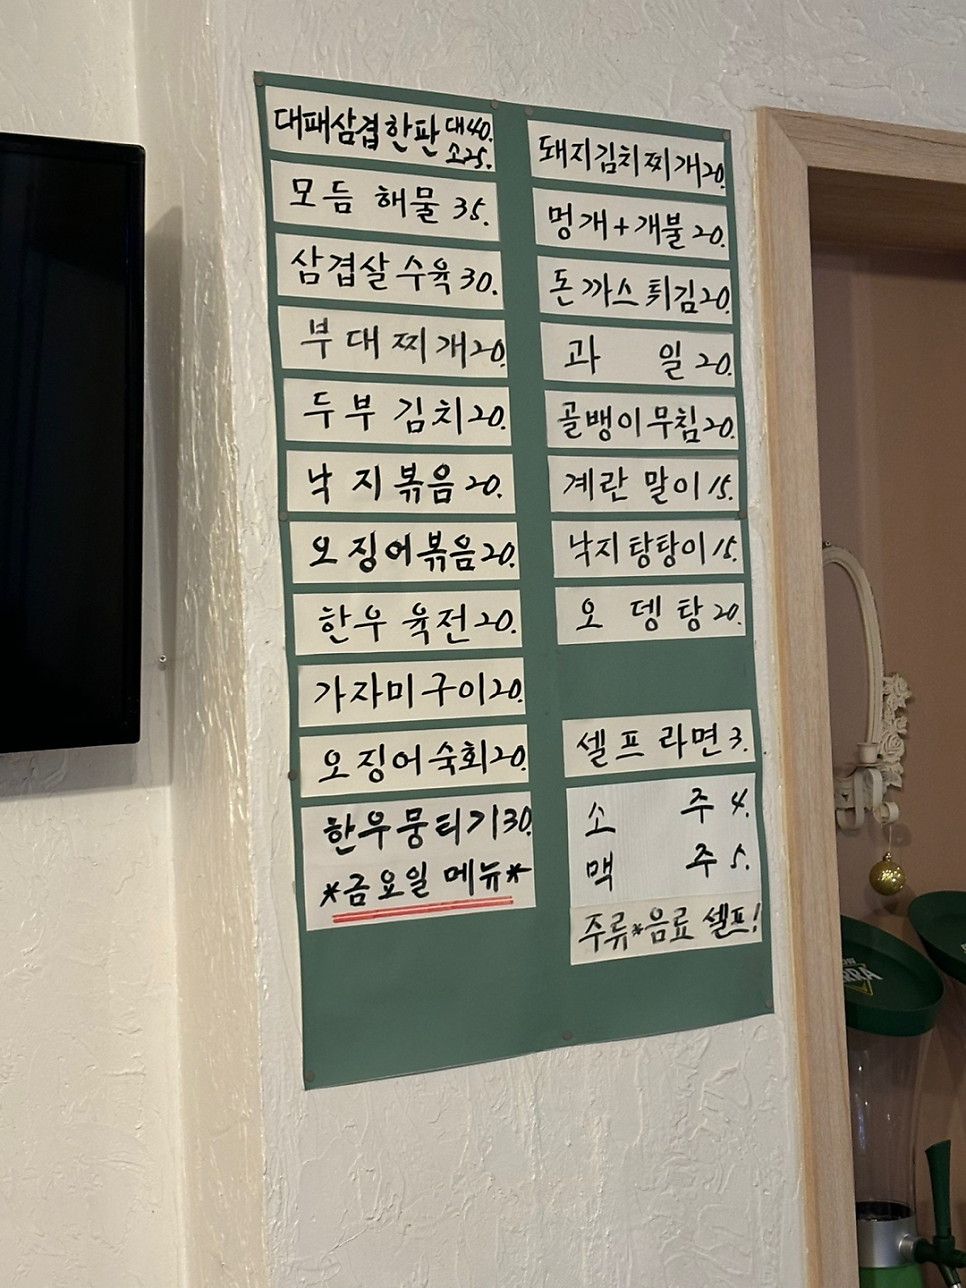 대패삼겹한판 대40.
소25.
모듬 해물 35.
삼겹살 수육 30.
부대찌개 20.
두부 김치 20.
낙지볶음 20.
오징어볶음 20.
한우 육전 20.
가자미구이 20.
오징어숙회 20.
한우뭉티기 30.
*금요일 메뉴*
돼지김치찌개 20.
멍개+개불 20.
돈까스 튀김 20.
과일 20.
골뱅이무침 20.
계란말이 15.
낙지탕탕이 15.
오뎅탕 20.
셀프라면 3.
소주 4.
맥주 5.
주류*음료 셀프!